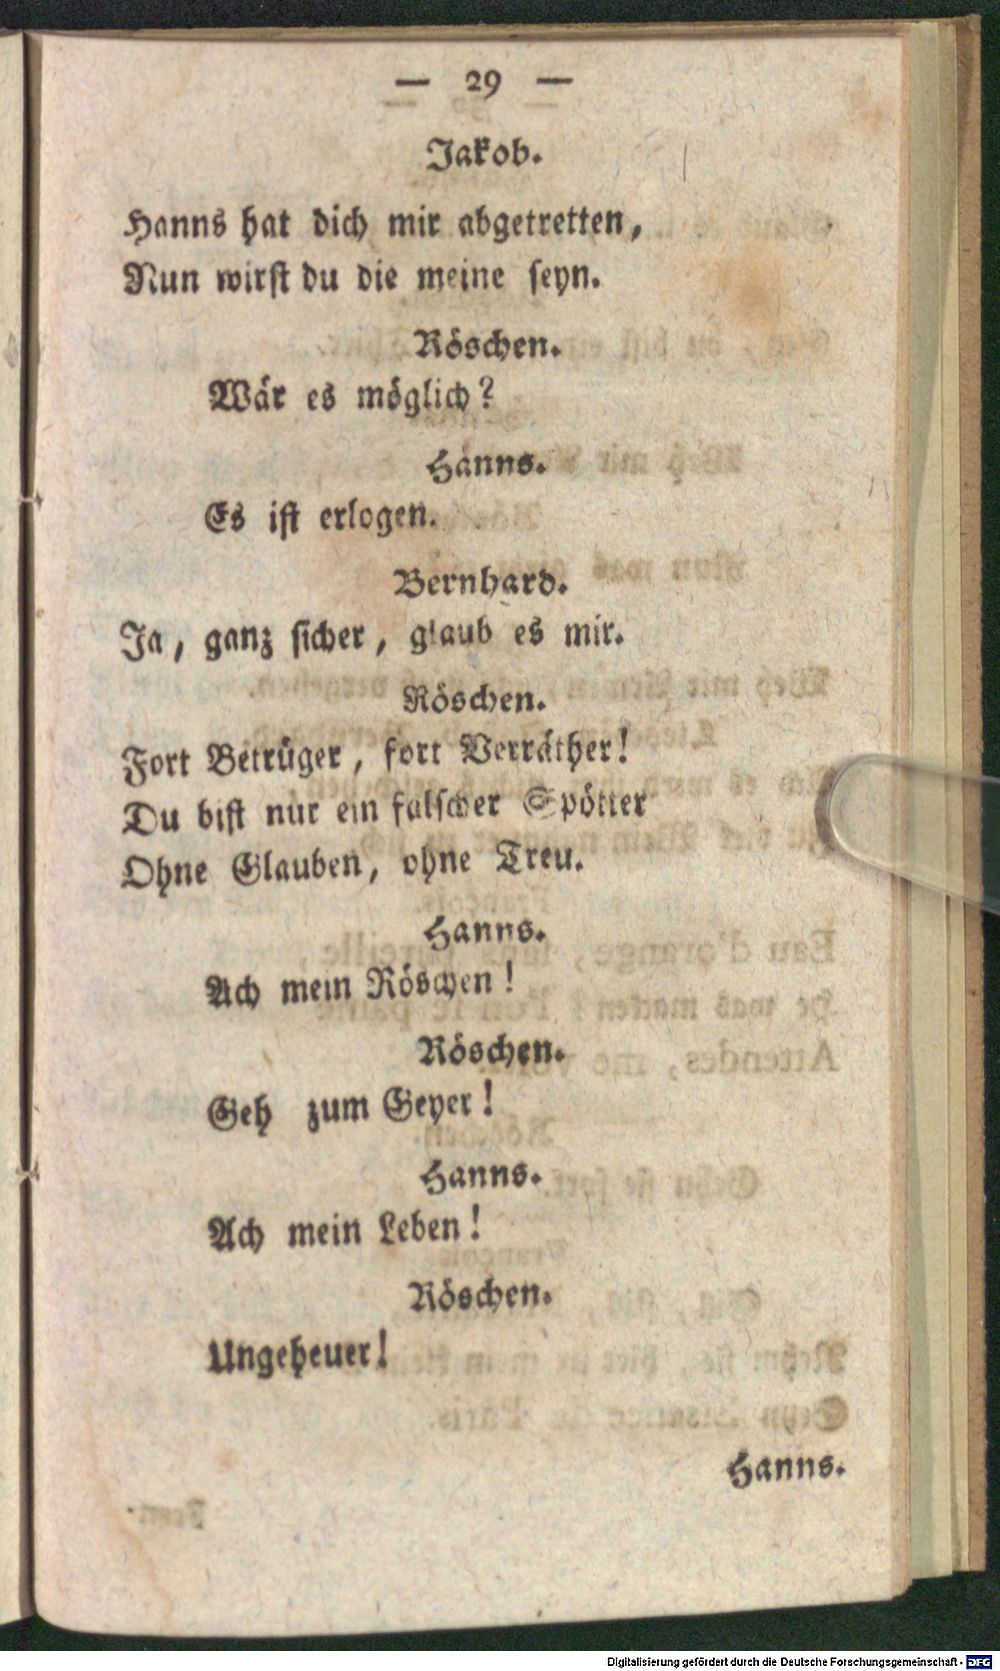 — 29 —
Jakob.
Hanns hat dich mir abgetretten,
Nun wirst du die meine seyn.
Röschen.
Wär es möglich?
Hanns.
Es ist erlogen.
Bernhard.
Ja, ganz sicher, glaub es mir.
Röschen.
Fort Betrüger, fort Verräther!
Du bist nur ein falscher Spötter
Ohne Glauben, ohne Treu.
Hanns.
Ach mein Röschen!
Röschen.
Geh zum Geyer!
Hanns.
Ach mein Leben!
Röschen.
Ungeheuer!
Hanns.
Digitalisierung gefördert durch die Deutsche Forschungsgemeinschaft - DFG